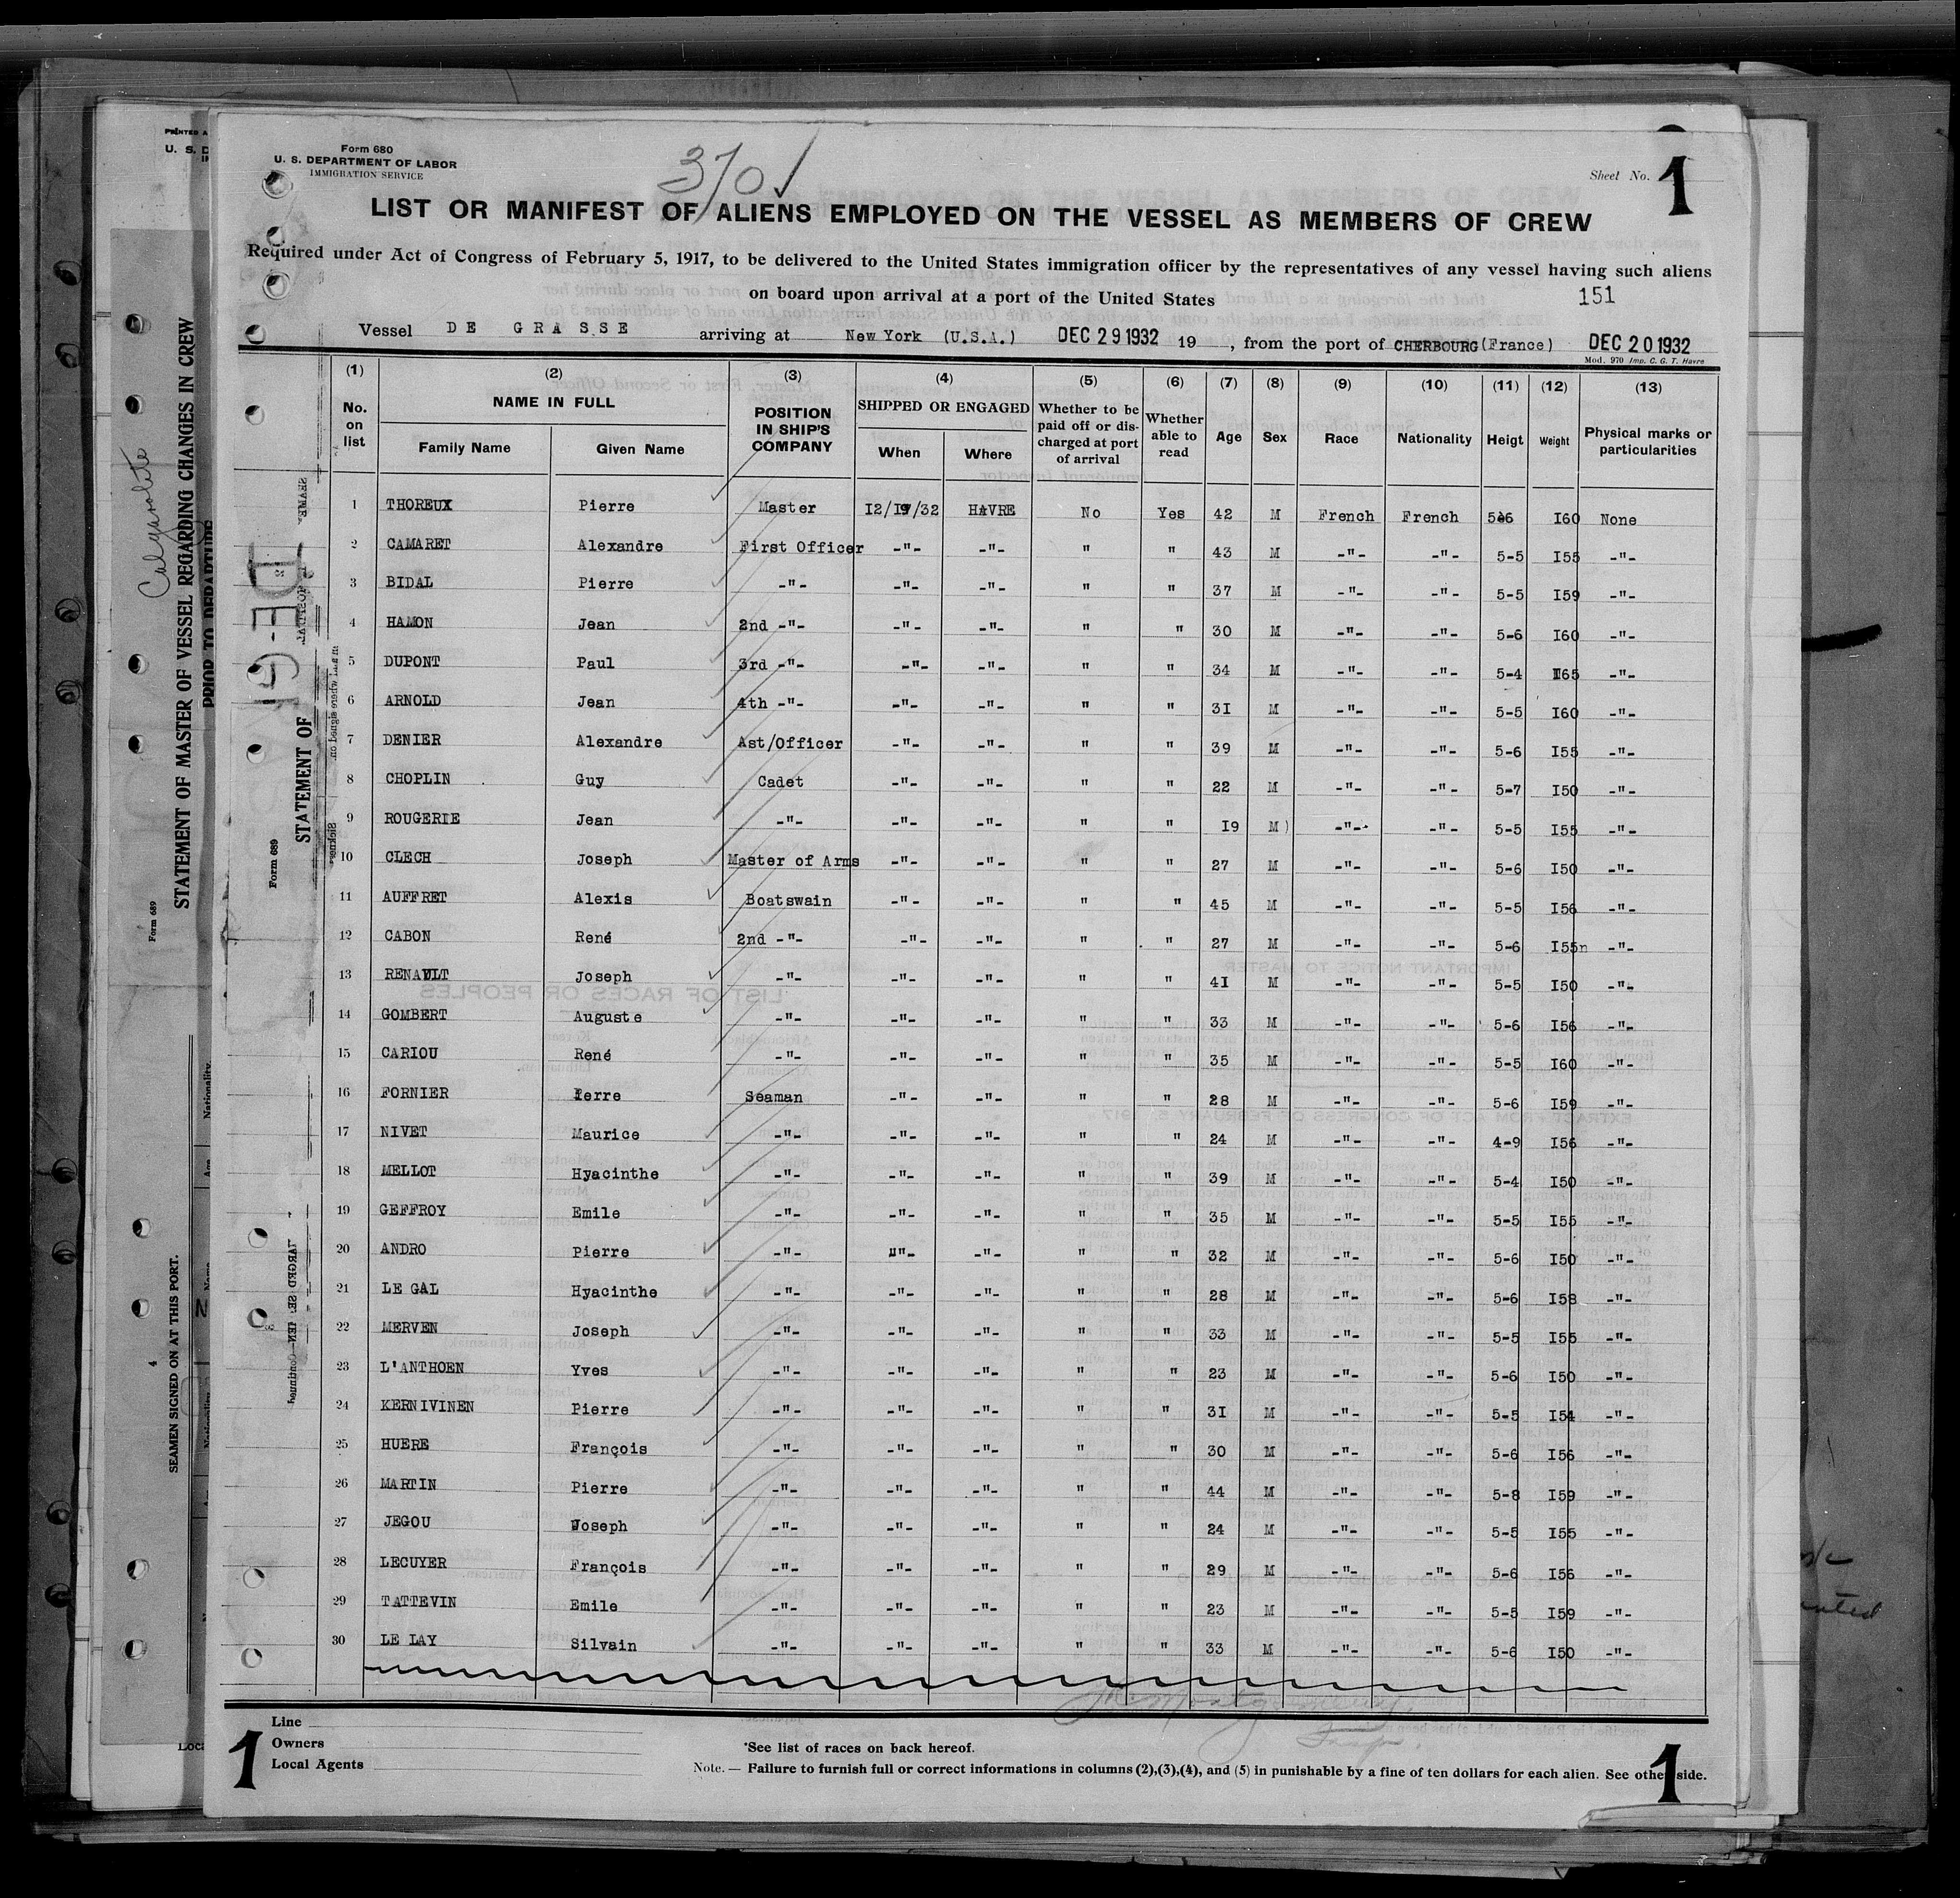 Form 680
U. S. DEPARTMENT OF LABOR
IMMIGRATION SERVICE
370
Sheet No. 1
LIST OR MANIFEST OF ALIENS EMPLOYED ON THE VESSEL AS MEMBERS OF CREW
Required under Act of Congress of February 5, 1917, to be delivered to the United States immigration officer by the representatives of any vessel having such aliens
on board upon arrival at a port of the United States
151
Vessel DE GRASSE arriving at New York (U.S.A.) DEC 29 1932 19 , from the port of CHERBOURG (France) DEC 20 1932
Mod. 970 Imp. C. G. T. Havre
(1) (2) (3) (4) (5) (6) (7) (8) (9) (10) (11) (12) (13)
No. on list NAME IN FULL Family Name Given Name POSITION IN SHIP'S COMPANY SHIPPED OR ENGAGED When Where Whether to be paid off or discharged at port of arrival Whether able to read Age Sex Race Nationality Heigt Weight Physical marks or particularities
1 THOREUX Pierre Master I2/I9/32 HAVRE No Yes 42 M French French 5-6 I60 None
2 CAMARET Alexandre First Officer -"- -"- " " 43 M -"- -"- 5-5 I55 -"-
3 BIDAL Pierre -"- -"- -"- " " 37 M -"- -"- 5-5 I59 -"-
4 HAMON Jean 2nd -"- -"- -"- " " 30 M -"- -"- 5-6 I60 -"-
5 DUPONT Paul 3rd -"- -"- -"- " " 34 M -"- -"- 5-4 I65 -"-
6 ARNOLD Jean 4th -"- -"- -"- " " 3I M -"- -"- 5-5 I60 -"-
7 DENIER Alexandre Ast/Officer -"- -"- " " 39 M -"- -"- 5-6 I55 -"-
8 CHOPLIN Guy Cadet -"- -"- " " 22 M -"- -"- 5-7 I50 -"-
9 ROUGERIE Jean -"- -"- -"- " " I9 M ) -"- -"- 5-5 I55 -"-
10 CLECH Joseph Master of Arms -"- -"- " " 27 M -"- -"- 5-6 I50 -"-
11 AUFFRET Alexis Boatswain -"- -"- " " 45 M -"- -"- 5-5 I56 -"-
12 CABON René 2nd -"- -"- -"- " " 27 M -"- -"- 5-6 I55n -"-
13 RENAULT Joseph -"- -"- -"- " " 4I M -"- -"- 5-5 I50 -"-
14 GOMBERT Auguste -"- -"- -"- " " 33 M -"- -"- 5-6 I56 -"-
15 CARIOU René -"- -"- -"- " " 35 M -"- -"- 5-5 I60 -"-
16 FORNIER Ierre Seaman -"- -"- " " 28 M -"- -"- 5-6 I59 -"-
17 NIVET Maurice -"- -"- -"- " " 24 M -"- -"- 4-9 I56 -"-
18 MELLOT Hyacinthe -"- -"- -"- " " 39 M -"- -"- 5-4 I50 -"-
19 GEFFROY Emile -"- -"- -"- " " 35 M -"- -"- 5-5 I55 -"-
20 ANDRO Pierre -"- -"- -"- " " 32 M -"- -"- 5-6 I50 -"-
21 LE GAL Hyacinthe -"- -"- -"- " " 28 M -"- -"- 5-6 I58 -"-
22 MERVEN Joseph -"- -"- -"- " " 33 M -"- -"- 5-5 I55 -"-
23 L'ANTHOEN Yves -"- -"- -"- " " 23 M -"- -"- 5-6 I50 -"-
24 KERNIVINEN Pierre -"- -"- -"- " " 3I M -"- -"- 5-5 I54 -"-
25 HUERE François -"- -"- -"- " " 30 M -"- -"- 5-6 I56 -"-
26 MARTIN Pierre -"- -"- -"- " " 44 M -"- -"- 5-8 I59 -"-
27 JEGOU Joseph -"- -"- -"- " " 24 M -"- -"- 5-5 I55 -"-
28 LECUYER François -"- -"- -"- " " 29 M -"- -"- 5-6 I56 -"-
29 TATTEVIN Emile -"- -"- -"- " " 23 M -"- -"- 5-5 I59 -"-
30 LE LAY Silvain -"- -"- -"- " " 33 M -"- -"- 5-6 I50 -"-
Line
Owners
Local Agents
1
*See list of races on back hereof.
Note. — Failure to furnish full or correct informations in columns (2),(3),(4), and (5) in punishable by a fine of ten dollars for each alien. See other side.
1
STATEMENT OF MASTER OF VESSEL REGARDING CHANGES IN CREW
PRIOR TO DEPARTURE
Form 689
SEAMEN SIGNED ON AT THIS PORT.
Form 689
STATEMENT OF
Nationality
Age
Name